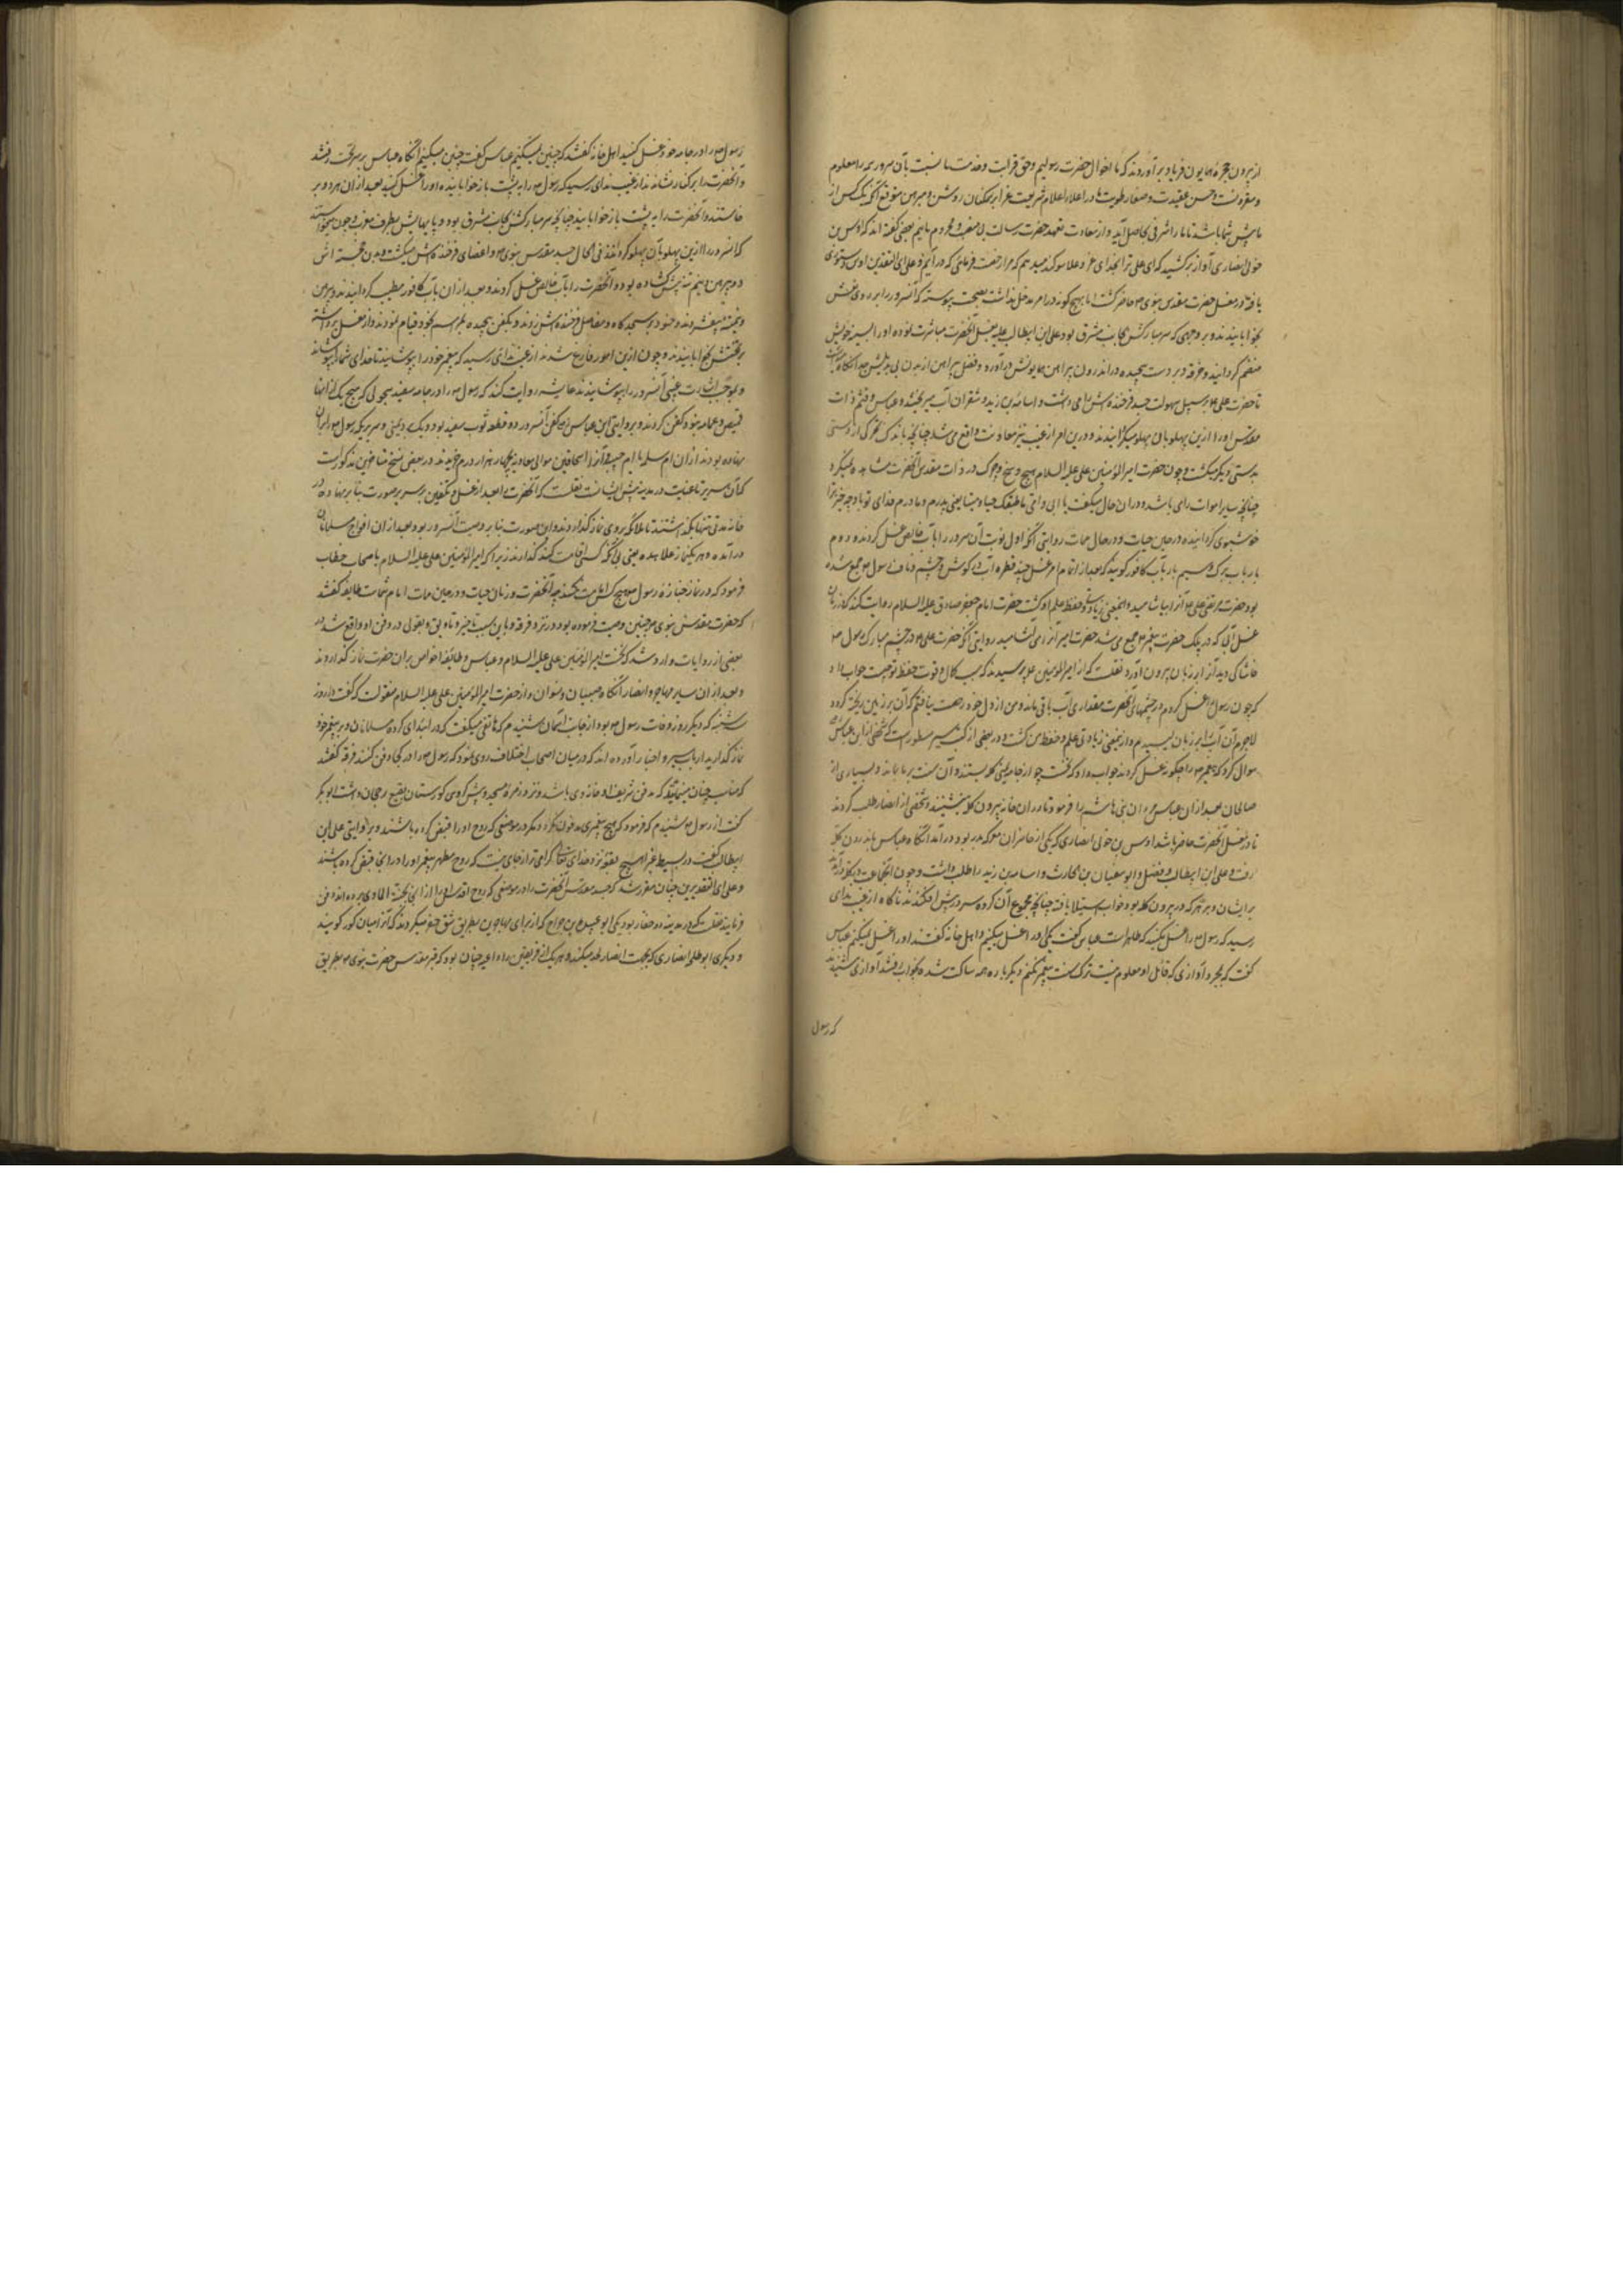 از بیرون حجرهٔ همایون فریاد برآوردند که ما اخوال حضرت رسولیم و حق قرابت و خدمت ما نسبت بآن سرور همه را معلوم
و مقرر است و حسن عقیدت و صفای طویت ما در اعلاء اعلام شریعت غرا بر همکنان روشن و مبرهن متوقع آنکه یک کس از
ما پیش شما باشد تا ما را شرفی بحاصل آید و از سعادت تعهد حضرت رسالت بی نصیب و محروم نمانیم بعضی گفته اند که اوس بن
خولی انصاری آواز برکشید که ای علی ترا بخدای عز و علا سوکند میدهم که مرا رخصت فرمائی که درآیم و علی ای التقدیرین اوس دستوری
یافته در مغسل حضرت مقدس نبوی حاضر گشت اما بهیچ گونه در امر مدخل نداشت بصحت پیوسته که آنسرور را بر روی تخت
بخوابانیدند بر وجهی که سر مبارکش بجانب مشرق بود و علی ابن ابیطالب علیه بغسل آنحضرت مباشرت نموده او را بسینه خویش
منضم گردانید و خرقه در دست پیچیده در اندرون پیراهن همایونش درآورد و فضل پیراهن از بدن بی
تا حضرت علی بر سبیل سهولت جسد فرخنده اش را می شست و اسامه بن زید و شقران آب میریختند و عباس و قثم ذات
مقدس او را ازین پهلو بآن پهلو میگردانیدند و درین امر از غیب نیز معاونت واقع می شد چنانچه باندک تحرکی از دستی
بدستی دیگر میگشت و چون حضرت امیر المؤمنین علی علیه السلام هیچ وسخ و چرک در ذات مقدس آنحضرت مشاهده نمیکرد
چنانچه سایر اموات رای باشد در ان حال میگفت بابی و امی ما طیبک حیا و میتا یعنی پدرم و مادرم فدای تو باد چه خبز ترا
خوشبوی گردانیده در حین حیات و در حال ممات روایتی آنکه اول نوبت آن سرور را بآب خالص غسل کردند و دوم
بار بآب برک و سیم بار بآب کافور گویند که بعد از اتمام امر غسل چند قطره آب در گوش و چشم و ناف رسول جمع شده
بود حضرت مرتضی علی آنرا بیاشامید و اینمعنی زیادتی و حفظ علم او گشت حضرت امام جعفر صادق علیه السلام روایت کند که در زمان
غسل آبی که در پلک حضرت پیغمبر جمع می شد حضرت امیر آنرا می آشامید روایتی آنکه حضرت علی در چشم مبارک رسول
خاشاکی دید آنرا بزبان بیرون آورد نقلست که از امیر المؤمنین علی پرسیدند که سبب کمال و قوت حفظ تو چیست جواب داد
که چون رسول را غسل کردم در چشمهای آنحضرت مقداری آب باقی ماند و من از دل خود رخصت نیافتم که آن بر زمین ریخته گردد
لاجرم آن آب را بزبان لیسیدم و از اینمعنی زیادتی علم و حفظ من گشت و در بعضی از کتب سیر مسطور است که شخصی از ابن عباس
سوال کرد که پیغمبر را چگونه غسل کردند جواب داد که گفت چو از جامه یمنی کله بستند و آن سنت بر ما بماند و بسیاری از
صالحان بعد از ان عباس مردان بنی هاشم را فرمود تا در ان خانه بیرون کله بنشینند و شخصی از انصار طلب کردند
تا در غسل آنحضرت حاضر باشد اوس بن خولی انصاری که یکی از حاضران معرکه بدر بود درآمد آنگاه عباس باندرون کله
رفت و علی ابن ابیطالب و فضل و ابو سفیان بن الحارث و اسامه بن زید را طلب داشت و چون آنجماعت در کله درآمدند
بر ایشان و بر هر که در بیرون کله بود خواب استیلا یافته چنانچه مجموع آن گروه سر در پیش افکندند ناگاه از غیب ندای
رسید که رسول را غسل مکنید که طاهر است عباس گفت یکی او را غسل میکنیم و اهل خانه گفتند او را غسل نمیکنیم عباس
گفت که بمجرد آوازی که قائل او معلوم نیست ترک سنت پیغمبر نکنم دیگر باره همه ساکت شده بخواب رفتند آوازی شنیدند
که رسول
رسول را در جامه خود غسل کنید اهل خانه گفتند که چنین نمیکنیم عباس گفت چنین میکنیم آنگاه عباس بر سر تخت رفتند
و آنحضرت را بر کنار نشاندند از غیب ندای رسید که رسول را به پشت باز خوابانیده او را غسل کنید بعد از ان هر دو بر
خاستند و آنحضرت را به پشت باز خوابانیدند چنانچه سر مبارکش بجانب مشرق بود و پایهایش بطرف مغرب و چون میخواستند
که آنسرور را ازین پهلو بآن پهلو گردانند فی الحال جسد مقدس نبوی و اعضای فرخنده اش میگشت و بدن خجسته اش
در پیراهن پیش گشاده بود و آنحضرت را بآب خالص غسل کردند و بعد از ان بآب کافور مطیب گردانیدند و پیرهن
و بقیه بیفشردند و حنوط بر سجدگاه و مفاصل فرخنده اش زدند و بکفن پیچیده قیام نمودند و از مغسل برداشته
بر تختش بخوابانیدند و چون ازین امور فارغ شدند از غیب ندای رسید که پیغمبر خود را بپوشانید تا خدای شما را بپوشاند
و بموجب اشارت غیبی آنسرور را بپوشانیدند عایشه روایت کند که رسول را در جامه سفید سحولی که هیچ یک از آنها
قمیص و عمامه نبود کفن کردند و بروایتی ابن عباس کفن آنسرور دو قطعه ثوب سفید بود و یک یمنی و سریریکه رسول را بران
نهاده بودند از ان ام سلمه یا ام حبیبه و آنرا اسحاقبن موالی معاویه بچهار هزار درم خریدند در بعضی نسخ متأخرین مذکور است
که آن سریر تا غایت در مدینه پیش ایشانست نقلست که آنحضرت را بعد از غسل و تکفین بر سریر بصورت میت نهاده در
خانه مدتی تنها بگذاشتند تا ملائکه بر وی نماز گذاردند و این صورت بنا بر وصیت آنسرور بود بعد از ان افواج مسلمانان
درآمده و هر یک نماز علاحده یعنی بی آنکه کسی امامت کند گذاردند زیرا که امیر المؤمنین علی علیه السلام باصحاب خطاب
فرمود که در نماز جنازه رسول هیچ کس امامت نکند چه آنحضرت در زمان حیات و در حین ممات امام شماست طایفه گفتند
که حضرت مقدس نبوی چنین وصیت فرموده بود در نزد فرقه و باین سبب تاخیر و تاویق و بقولی در دفن او واقع شد در
بعضی از روایات وارد شد که نخست امیر المؤمنین علی علیه السلام و عباس و طایفه اخواص بران حضرت نماز گذاردند
و بعد از ان سایر مهاجر و انصار آنگاه صبیان و نسوان و از حضرت امیر المؤمنین علی علیه السلام منقولست که گفت در روز
سه شنبه که دیگر روز وفات رسول بود از جانب آسمان شنیدم که هاتفی میگفت که در ابتدای گروه مسلمانان بر پیغمبر خود
نماز گذارید ارباب سیر و اخبار آورده اند که در میان اصحاب اختلاف روی نمود که رسول را در کجا دفن کنند فرقه گفتند
که مناسب چنان مینماید که مدفن شریف او خانه وی باشد و نزد زمره مسجد و پیش گروهی گورستان بقیع رجحان داشت ابو بکر
گفت از رسول شنیدم که فرمود که هیچ پیغمبری مدفون نگردد مگر در موضعی که روح او را قبض کرده باشند و بروایتی علی ابن
ابیطالب گفت در بسیط غبرا هیچ بقعه نزد خدای تعالی گرامی تر از جای نیست که روح مطهر پیغمبر او را در آنجا قبض کرده باشند
و علی ای التقدیرین چنان مقرر شد که جسد مقدس آنحضرت را در موضعی که روح اقدس او را از آنجا بجنة الماوی برده اند دفن
فرمایند نقلست که در مدینه دو حفار بود یکی ابو عبیده بن جراح که از برای مهاجرین بطریق شق حفر میکردند که آنرا میان گور گویند
و دیگری ابو طلحه انصاری که بجهت انصار لحد میکند و هر یک از فریقین را داعیه چنان بود که قبر مقدس حضرت نبوی بطریق